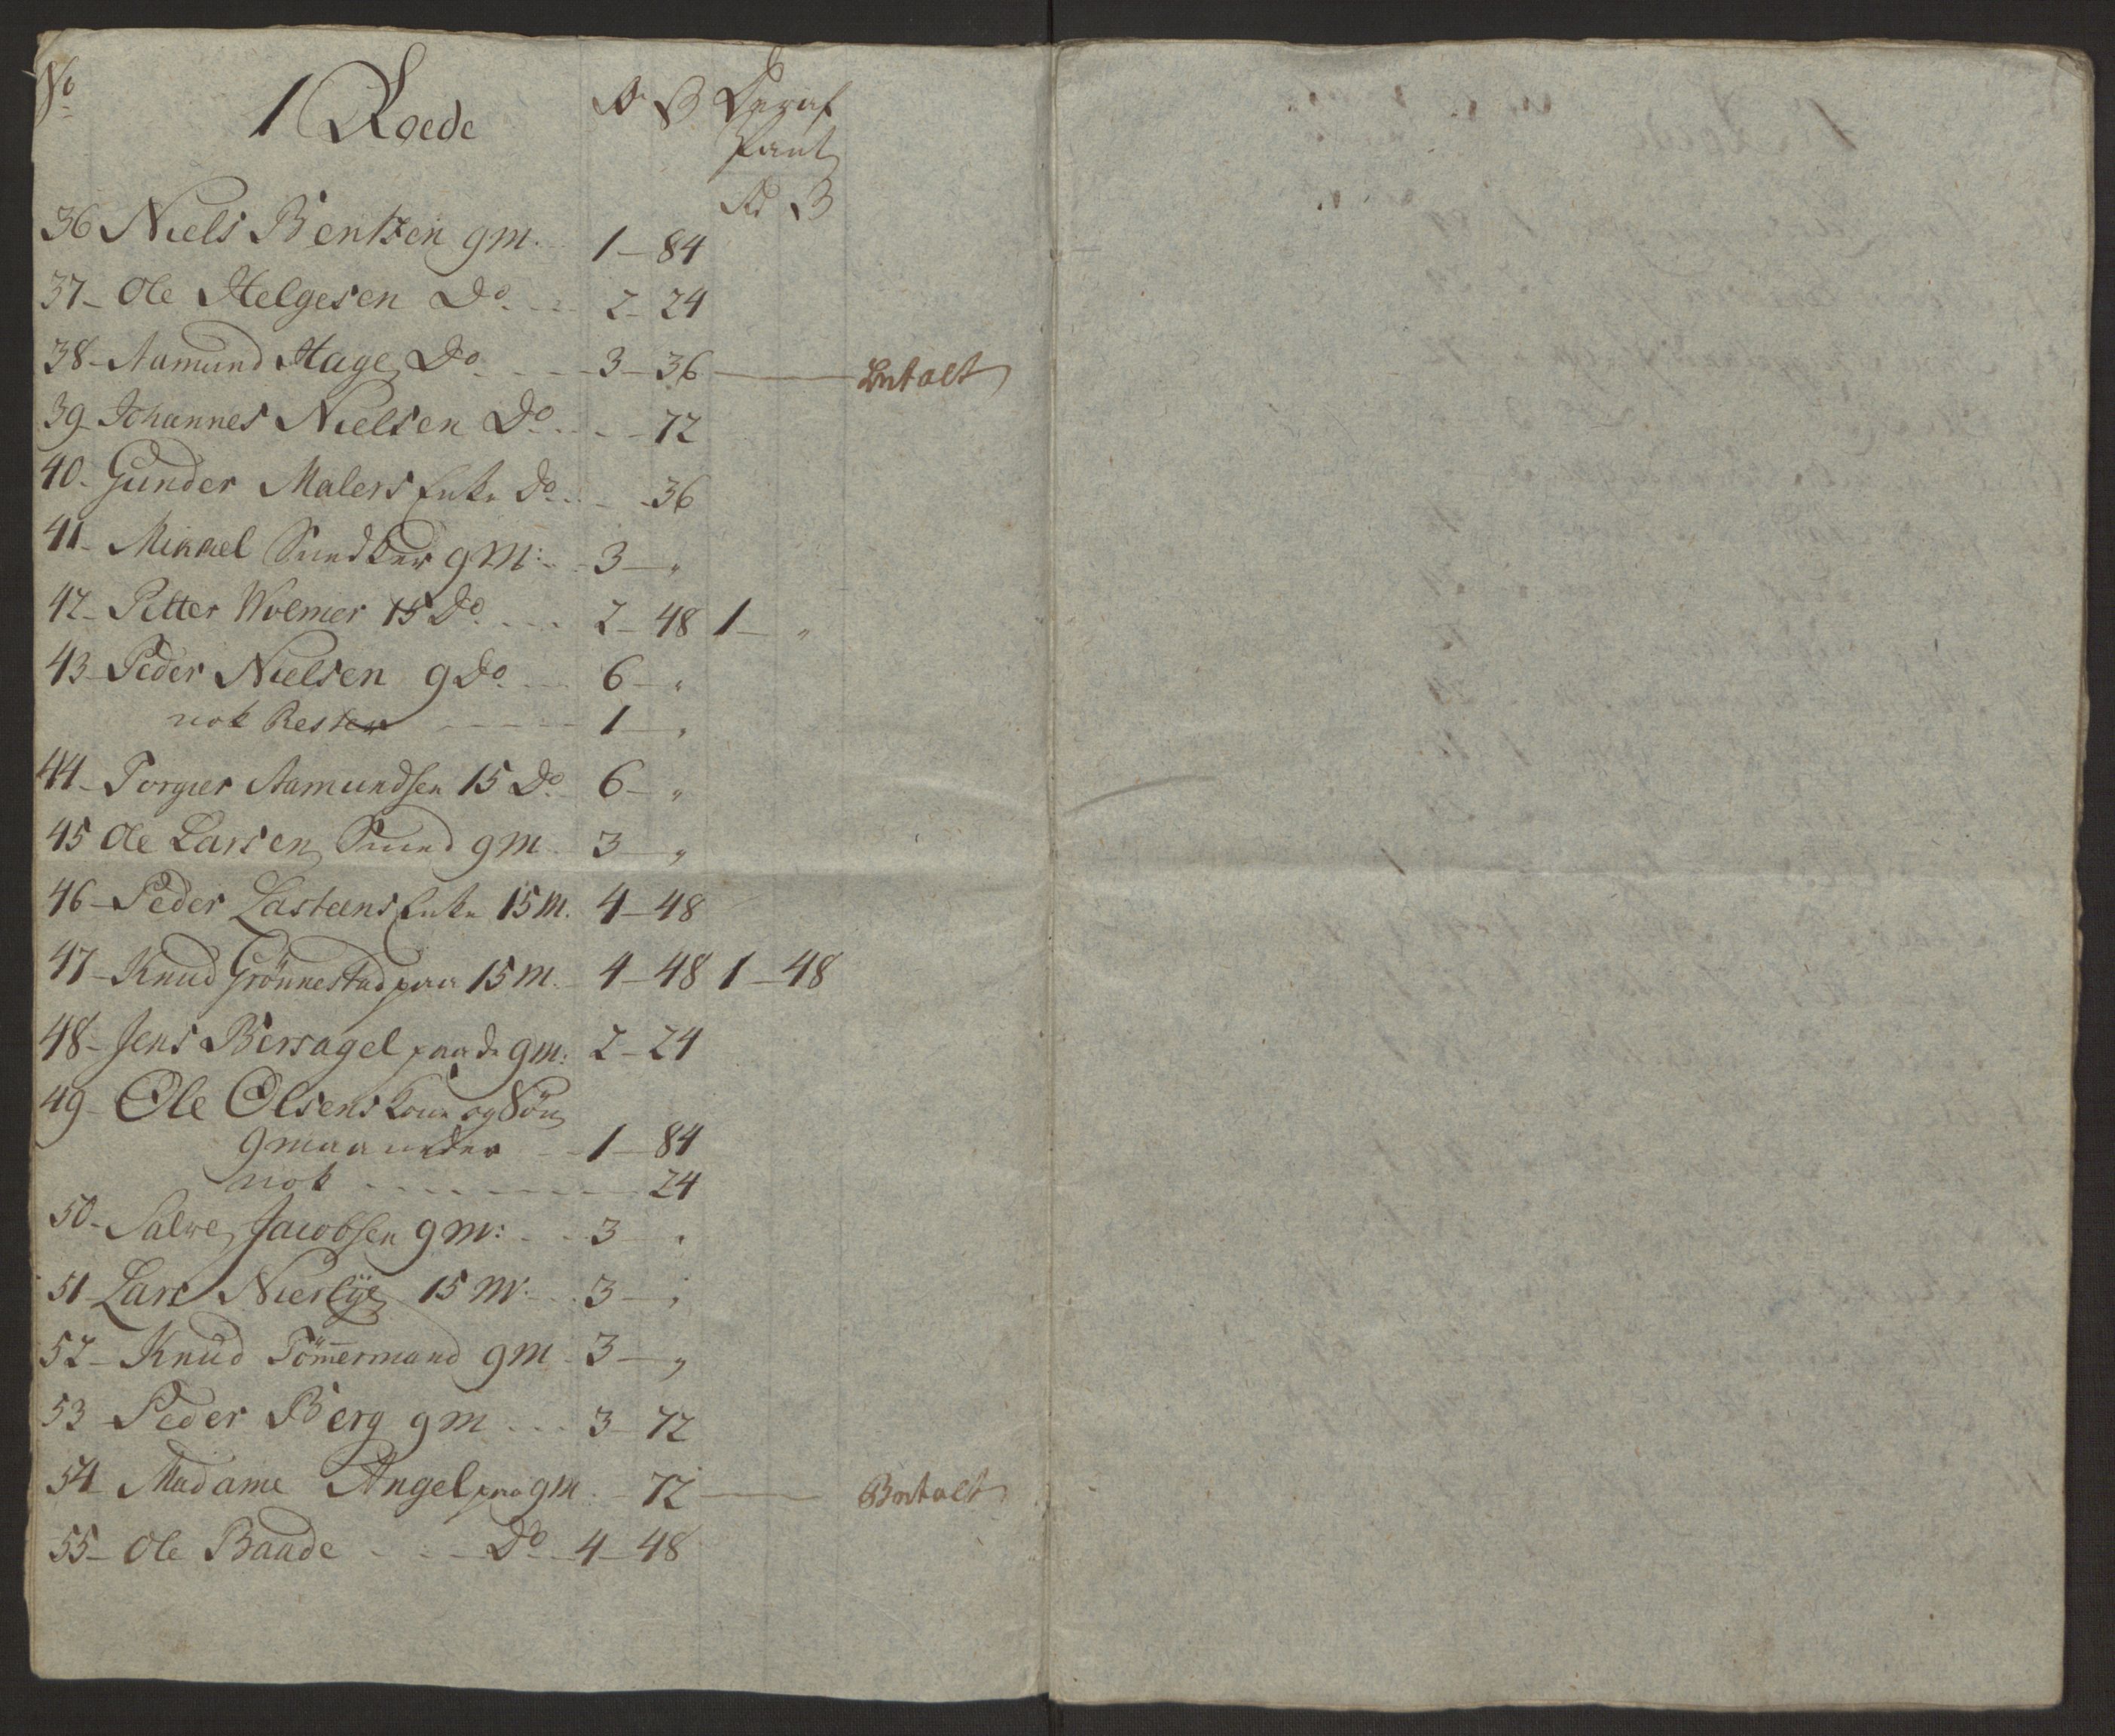 No
1 Roede
Rd ẞ Deraf
Pant
Rd ẞ
36 Niels Bentzen 9 m. 1 - 84
37 - Ole Helgesen Do. 2 - 24
38 - Aamund Hage Do. 3 - 36 Betalt
39 - Johannes Nielsen Do. 72
40 - Gunder Malers Enke do. 36
41 - Mikkel 9 M: 3 - "
42 - Petter Wolmer 15 Do. 2 - 48 1 - "
43 - Peder Nielsen 9 do. 6 - "
nok Rester 1 - "
44 - Torgier Aamundsen 15 Do. 6 - "
45 Ole Larsen Smed 9 M. 3 - "
46 - Peder Lasteens Enke 15 M. 4 - 48
47 - Knud Grönnestad paa 15 M. 4 - 48 1 - 48
48 - Jens Bersagel paa do 9 m: 2 - 24
49 - Ole Olsens Kone og Sön
9 maaneder 1 - 84
nok 24
50 - Salve Jacobsen 9 m: 3 "
51 Lars Nierlÿe 15 M. 3 - "
52 - Knud Tömmermand 9 M 3 - "
53 - Peder Berg 9 M 3 - 72
54 Madame Angel paa 9 M. 72 Betalt
55 - Ole Baade Do. 4 - 48